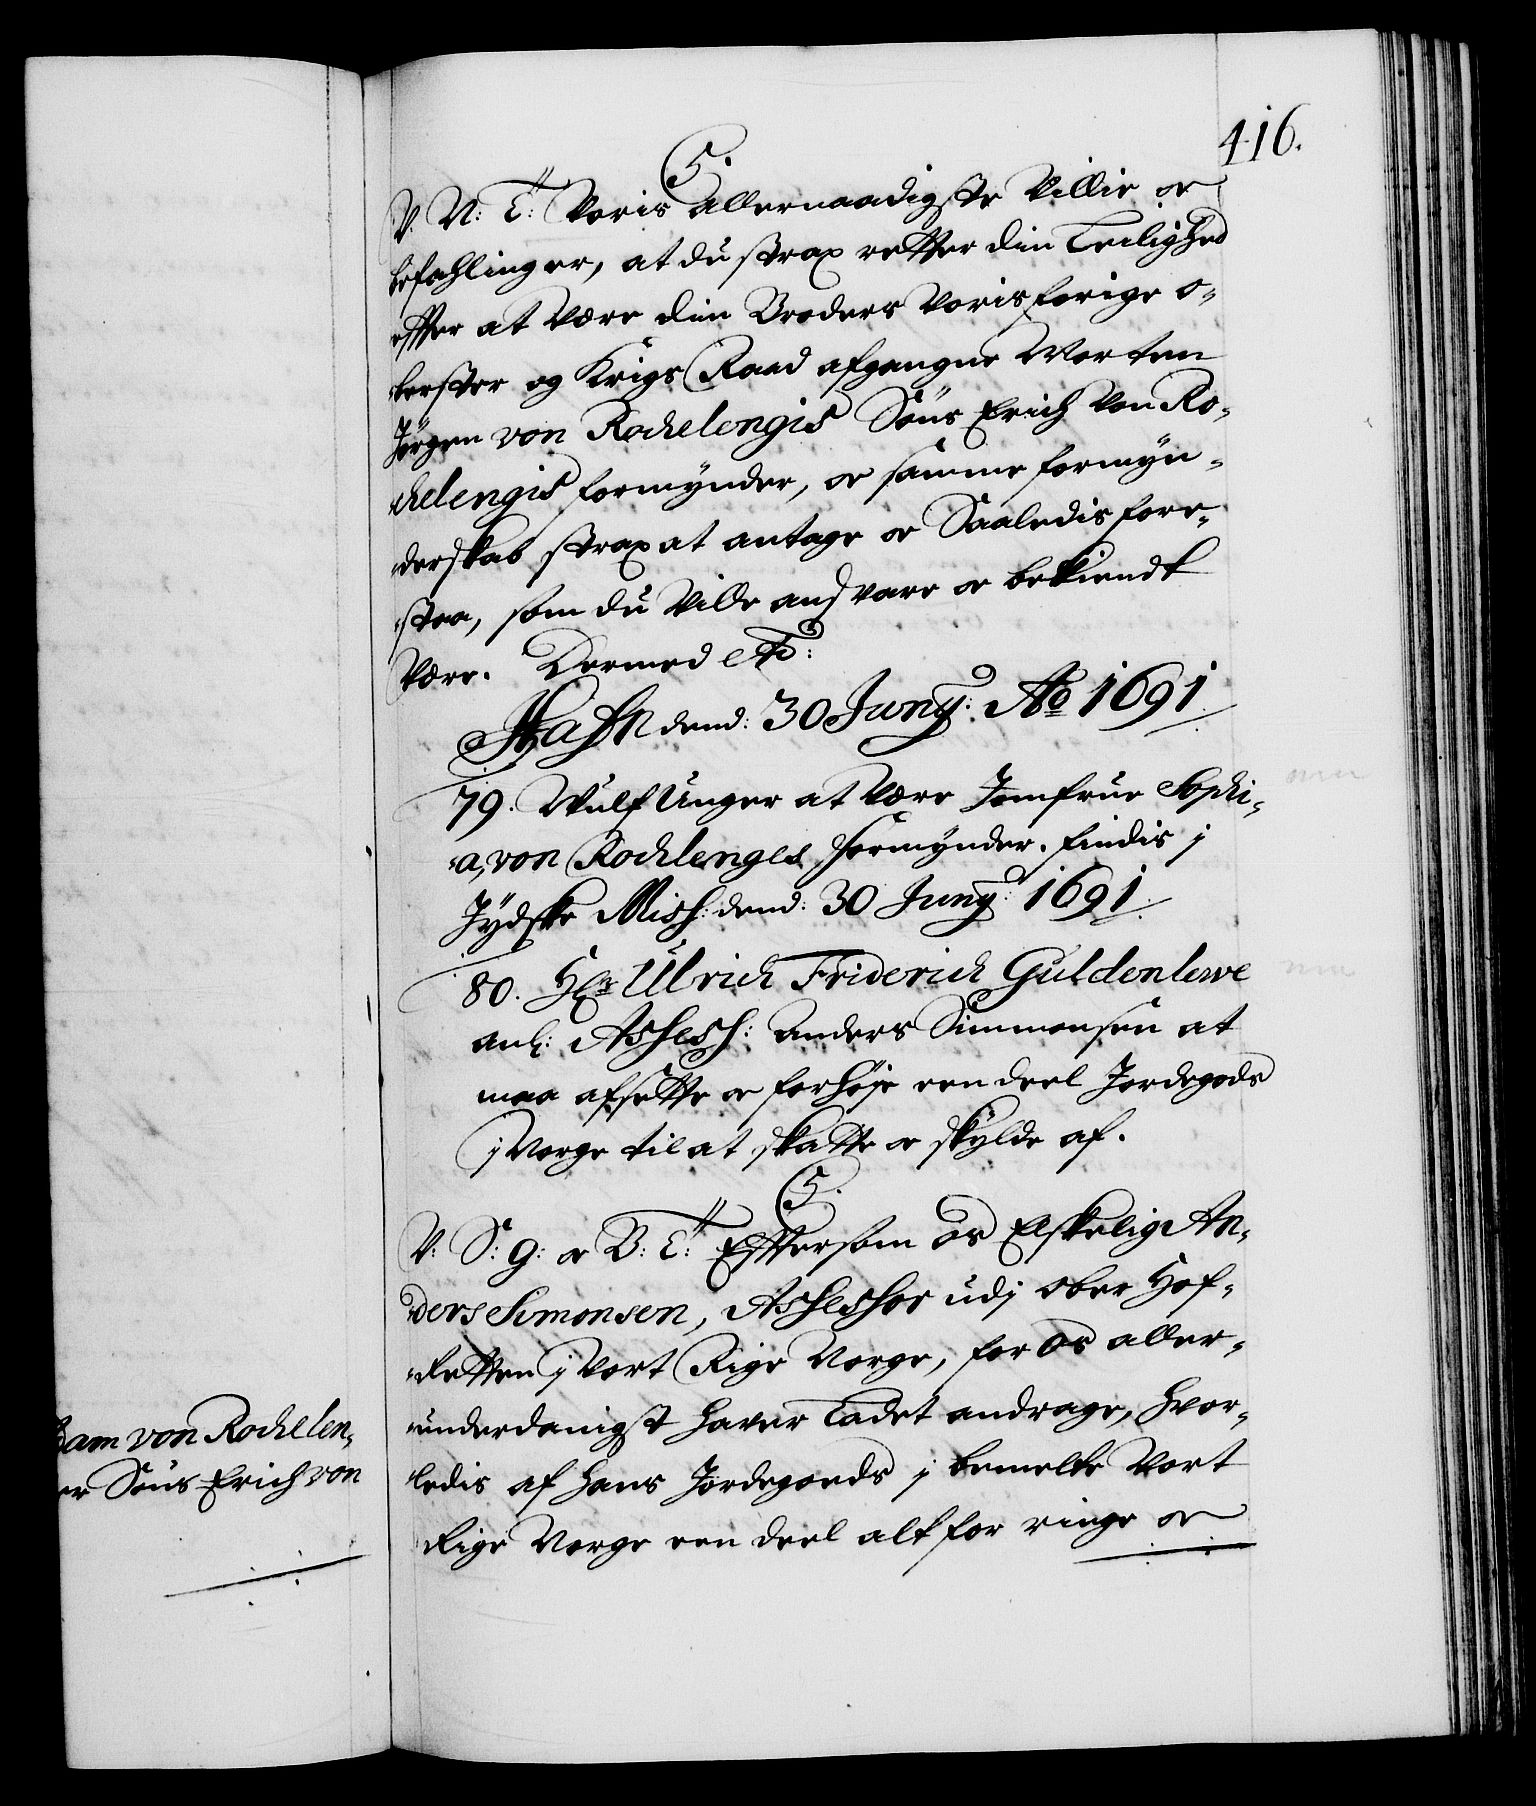 416.
C5.
V. N: T: Voris allernaadigste Villie oc
befahling er, at du strax retter din Leilighed
effter at være din Broders Voris forige o-
berster og Krigs Raad afgangne Morten
Jørgen von Rochelengis Søns Erich von Ro-
chelengis formynder, oc samme formyn-
derskab strax at antage oc Saaledis fore-
staa, som du Ville andsvare oc bekiendt
være. Dermed etc:
Hafn dend: 30 Juny: Ao 1691.
79. Wulf Unger at være Jomfrue Sophi-
a, von Rochlenges formynder. findis j
Jydske Miss: dend: 30 Juny: 1691.
80. Hr: Ulrich Friderich Guldenlewe
anl: Assess: Anders Simmonsen at
maa afsette oc forhøje een deel Jordegods
j Norge til at skatte oc skylde af.
C5.
V: S: g: oc B: T: Effter som Os Elskelig An-
ders Simonsen, Assessor udj ober Hof-
Retten j Vort Rige Norge, for Os aller-
underdanigst haver Ladet andrage, hvor-
ledis af hans Jordegoeds j bemelte Vort
Rige Norge een deel alt for ringe oc
am von Rochelen-
er Søns Erich von